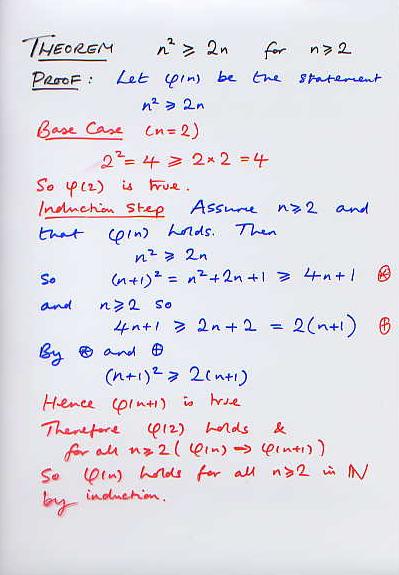 THEOREM n² ⩾ 2n for n⩾2
PROOF: Let φ(n) be the statement
n² ⩾ 2n
Base Case (n=2)
2² = 4 ⩾ 2×2 = 4
So φ(2) is true.
Induction Step Assume n⩾2 and
that φ(n) holds. Then
n² ⩾ 2n
So (n+1)² = n²+2n+1 ⩾ 4n+1 ⊛
and n⩾2 so
4n+1 ⩾ 2n+2 = 2(n+1) ⊕
By ⊛ and ⊕
(n+1)² ⩾ 2(n+1)
Hence φ(n+1) is true
Therefore φ(2) holds &
for all n⩾2 (φ(n) → φ(n+1))
So φ(n) holds for all n⩾2 in ℕ
by induction.